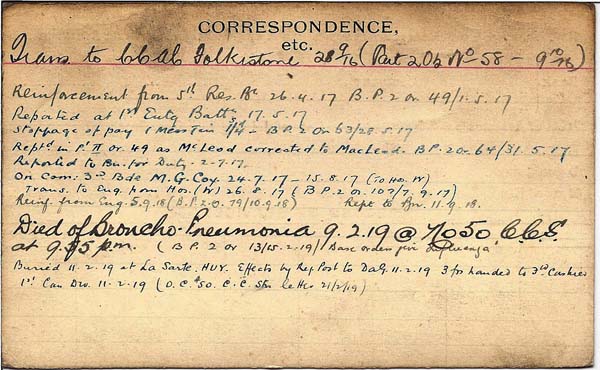 CORRESPONDENCE,
etc.
Trans to CCAC Folkistone 28 9/16 (Part 2 Ob No 58 - 9 10/16)
Reinforcement from 5th Res. Bn 26.4.17 B.P.2 On 49/1.5.17
Reported at 1st Entg Battn 17.5.17
Stoppage of pay 1 Mess Tin - B.P.2 On 63/28.5.17
Reptd in Pt II Or. 49 as McLeod corrected to MacLeod. B.P.2 Or 64/31.5.17
Reported to Bn. for Duty. 2-7.17.
On Com: 3rd Bde M.G. Coy. 24.7.17 - 15.8.17 (To Ho. W)
Trans. to Eng. from Hos. (W) 26.8.17 (B.P.2 or 107/7.9.17)
Reinf. from Eng. 5.9.18 (B.P.2.O.79/10.9.18) Rept to Bn. 11.9.18.
Died of Broncho-Pneumonia 9.2.19 @ No 50 C.C.S.
at 9.35 p.m. (B.P.2 or 13/15.2.19) Base orders give Influenza
Buried 11.2.19 at La Sarte. HUY. Effects by Reg Post to DAG. 11.2.19 3 frs handed to 3rd Cashier
1st Can Div. 11.2.19 (O.C. 50. C.C. Stn letter 21/2/19)